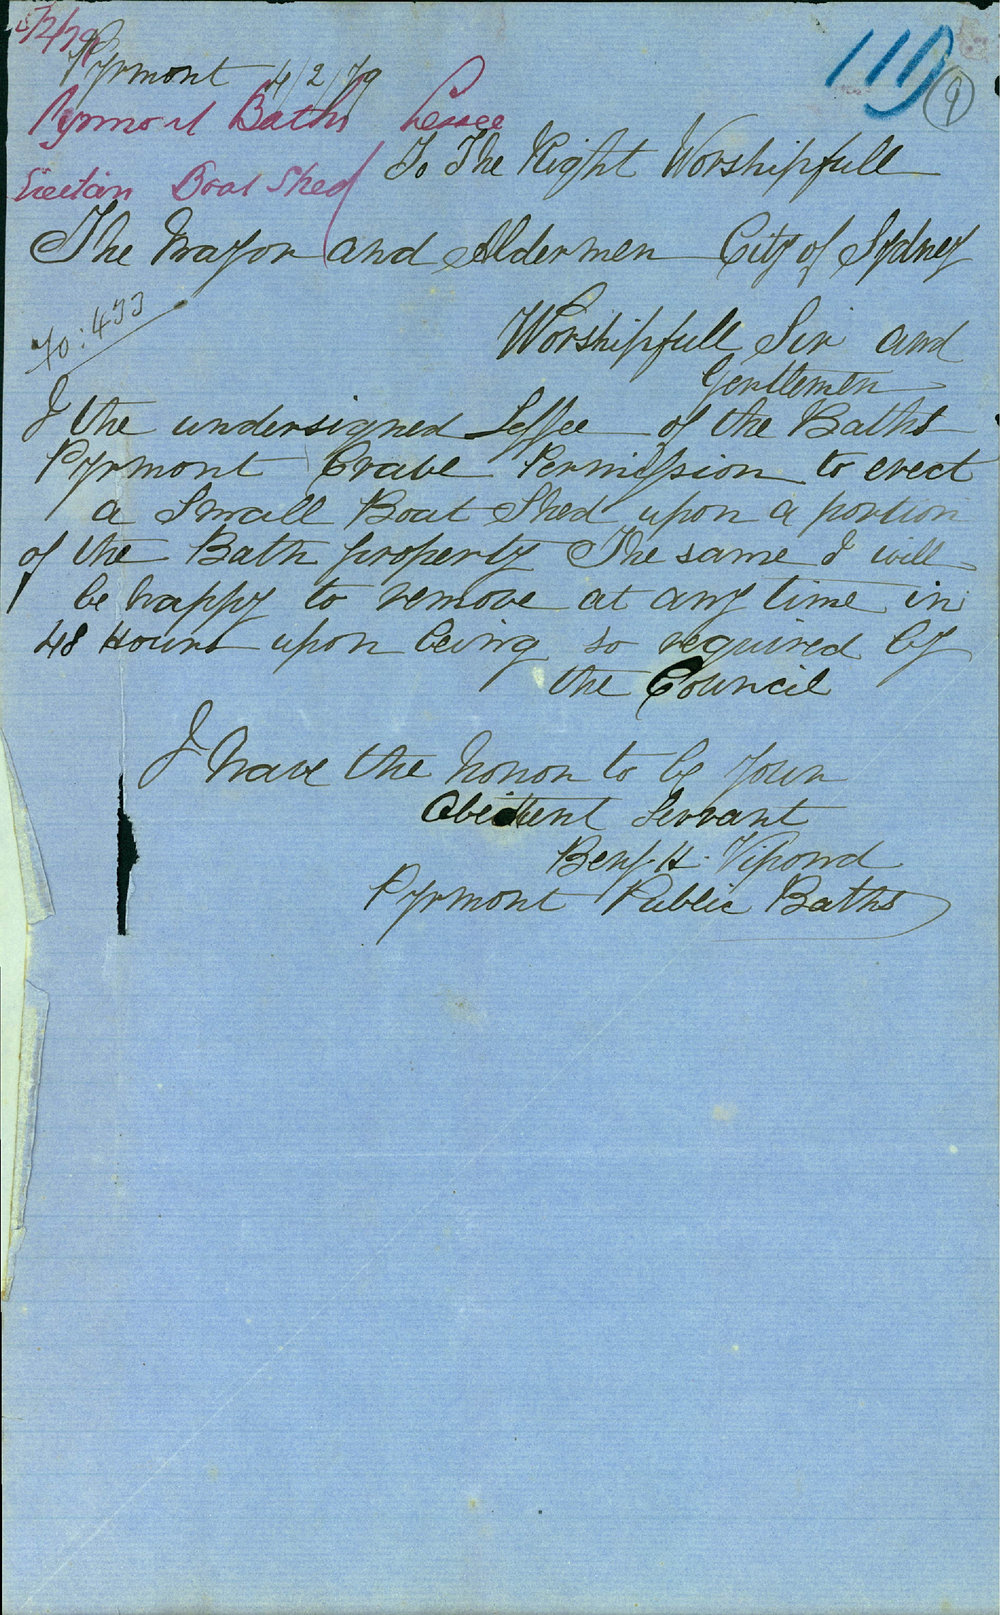 5/2/79
119
9
Pyrmont 4/2/79
Pyrmont Baths Lessee
To The Right Worshipfull
Erectn Boat Shed
The Mayor and Aldermen City of Sydney
No: 433
Worshipfull Sir and
Gentlemen
I the undersigned Lessee of the Baths
Pyrmont Crave Permission to erect
a Small Boat Shed upon a portion
of the Bath property The same I will
be happy to remove at any time in
48 Hours upon being so required by
the Council
I have the honor to be your
Obedient Servant
Benj. H. Vipond
Pyrmont Public Baths